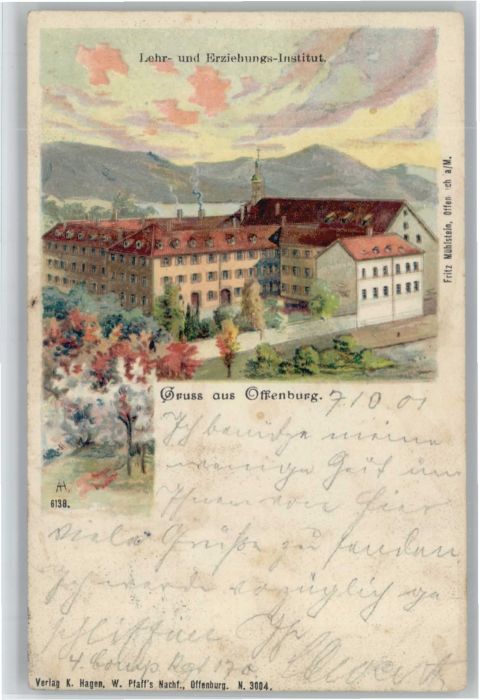 Lehr- und Erziehungs-Institut.
Fritz Mühlstein, Offenbach a/M.
Gruss aus Offenburg. 7.10.01
Ich benutze meine
wenige Zeit um
Ihnen von hier
viele Grüße zu senden
Ich werde vorzüglich ge-
schliffen Ihr
4. Comp. 170
AA
6138.
Verlag K. Hagen, W. Pfaff's Nachf., Offenburg. N. 3004.